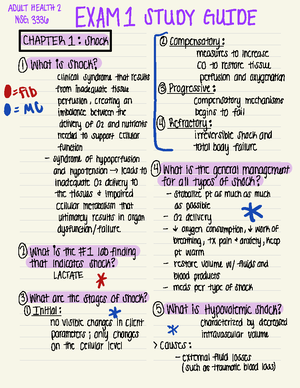 ADULT HEALTH 2
NSG 3336
EXAM 1 STUDY GUIDE
CHAPTER 1: Shock
① What is shock?
clinical syndrome that results
from inadequate tissue
perfusion, creating an
imbalance between the
delivery of O2 and nutrients
needed to support cellular
function
- syndrome of hypoperfusion
and hypotension → leads to
inadequate O2 delivery to
the tissues & impaired
cellular metabolism that
ultimately results in organ
dysfunction/failure
= FIB
= MC
② What is the #1 lab finding
that indicates shock?
LACTATE
③ What are the stages of shock?
① Initial:
no visible changes in client
parameters; only changes
on the cellular level
② Compensatory:
measures to increase
CO to restore tissue
perfusion and oxygenation
③ Progressive:
compensatory mechanisms
begins to fail
④ Refractory:
irreversible shock and
total body failure
④ What is the general management
for all types of shock?
- stabilize pt as much as much
as possible
- O2 delivery
- ↓ oxygen consumption, ↓ work of
breathing, tx pain & anxiety, keep
pt warm
- restore volume w/ fluids and
blood products
- meds per type of shock
⑤ What is Hypovolemic shock?
characterized by decreased
intravascular volume
> Causes:
- external fluid losses
(such as traumatic blood loss)